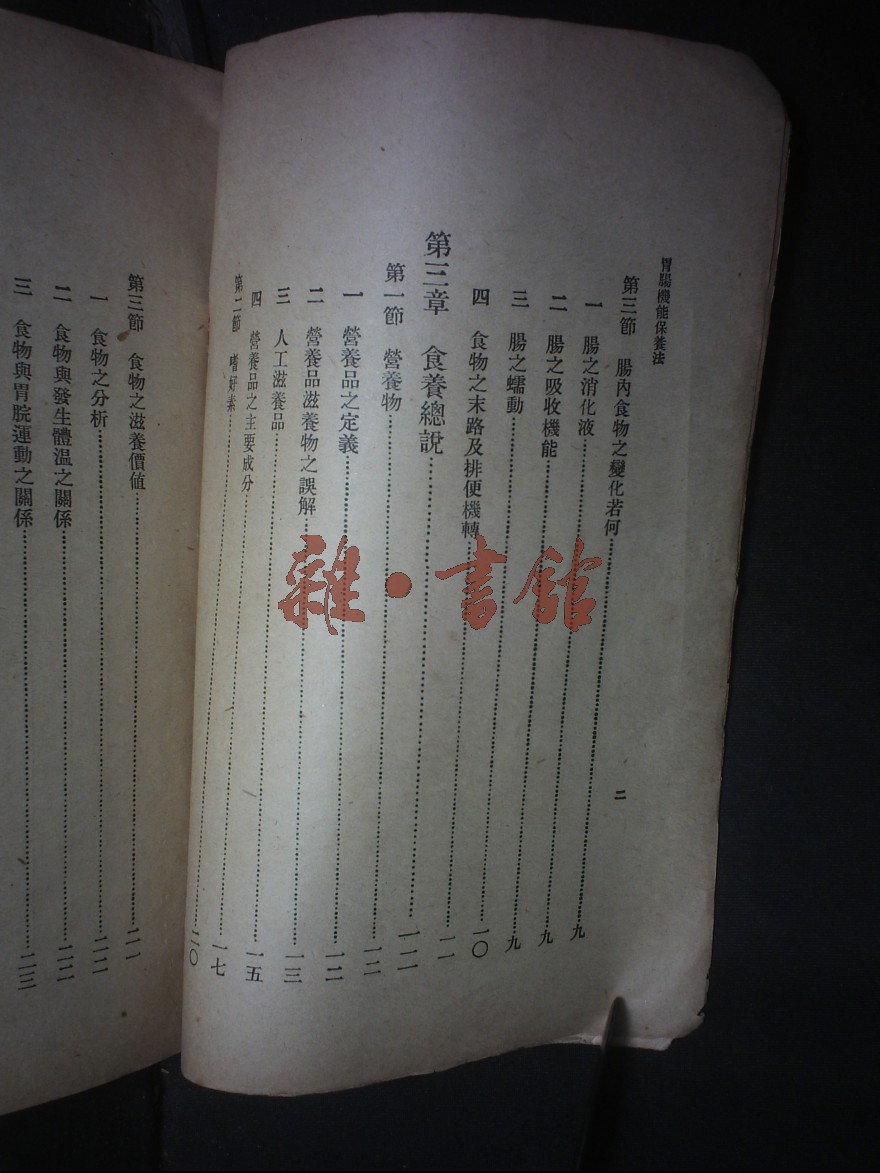 胃腸機能保養法
二
第三節 腸內食物之變化若何……九
一 腸之消化液……九
二 腸之吸收機能……九
三 腸之蠕動……一〇
四 食物之末路及排便機轉……一一
第三章 食養總說……一二
第一節 營養物……一二
一 營養品之定義……一二
二 營養品滋養物之誤解……一三
三 人工滋養品……一五
四 營養品之主要成分……一七
第二節 嗜好素……二〇
第三節 食物之滋養價値……二一
一 食物之分析……二二
二 食物與發生體溫之關係……二二
三 食物與胃脘運動之關係……二三
雜·書館